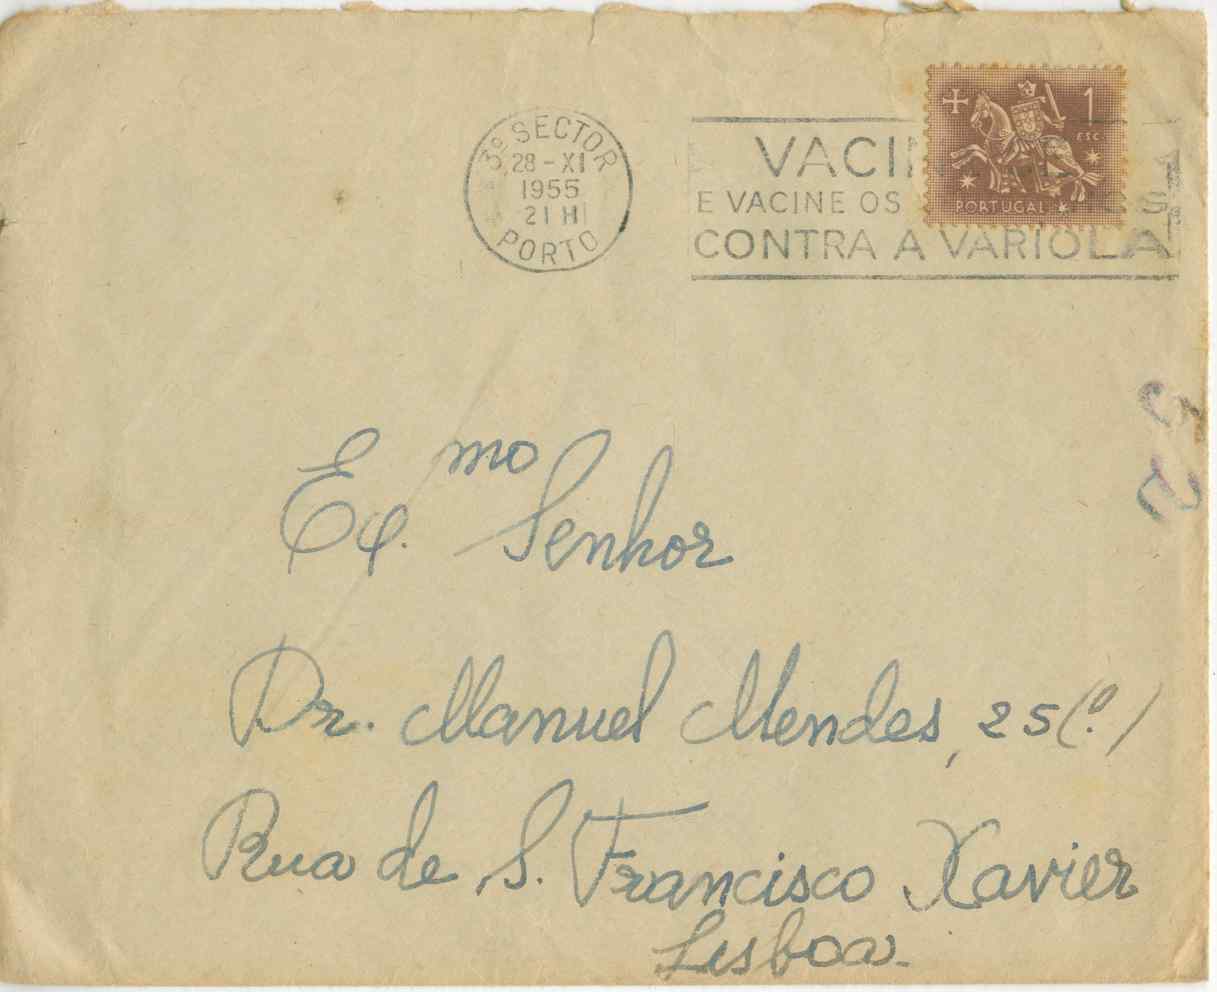 3º SECTOR
28-XI
1955
21 H
PORTO
E VACINE OS
CONTRA A VARIOLA
1
ESC
PORTUGAL
Exmo Senhor
Dr. Manuel Mendes, 25(º)
Rua de S. Francisco Xavier
Lisboa